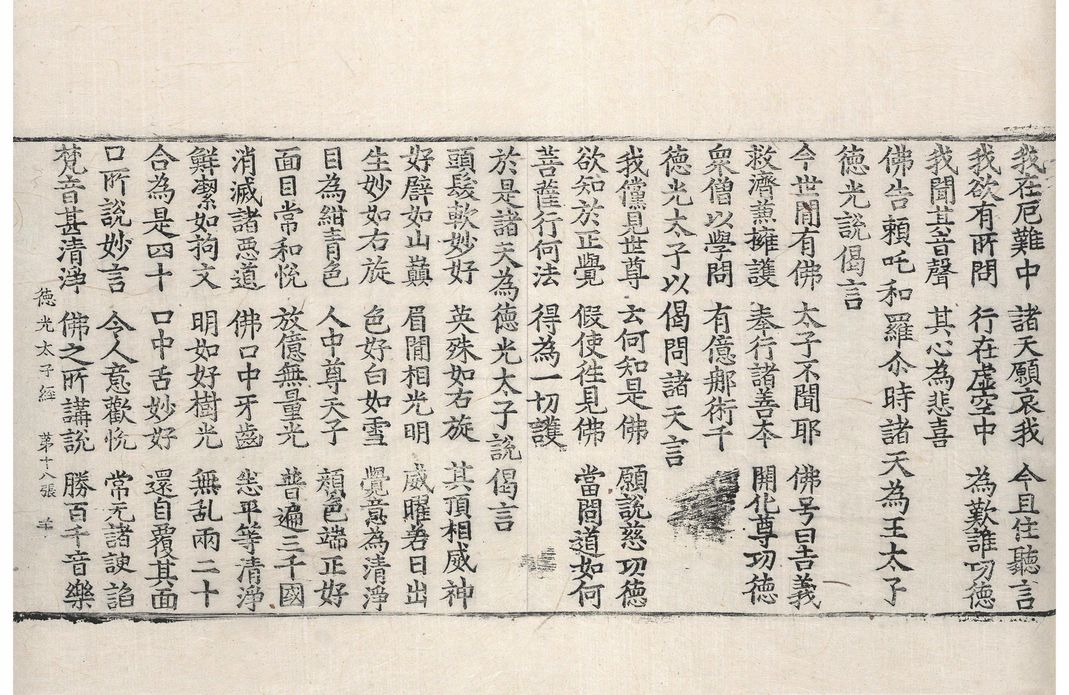 我在厄難中 諸天願哀我 今且住聽言
我欲有所問 行在虛空中 為歎誰功德
我聞其音聲 其心為悲喜
佛告賴吒和羅尒時諸天為王太子
德光說偈言
今世閒有佛 太子不聞耶 佛号曰吉義
救濟兼擁護 奉行諸善夲 開化尊功德
衆僧以學問 有億那術千
德光太子以偈問諸天言
我儻見世尊 云何知是佛 願說慈功德
欲知於正覺 假使徃見佛 當問道如何
菩薩行何法 得為一切護
於是諸天為德光太子說偈言
頭髮軟妙好 英殊如右旋 其頂相威神
好譬如山巔 眉閒相光明 威曜若日出
生妙如右旋 色好白如雪 覺意為清淨
目為紺青色 人中尊天子 顏色端正好
面目常和悅 放億無量光 普遍三千國
消滅諸惡道 佛口中牙齒 悉平等清淨
鮮潔如拘文 明如好樹光 無乱兩二十
合為是四十 口中舌妙好 還自覆其面
口所說妙言 令人意歡悅 常无諸諛諂
梵音甚清淨 佛之所講說 勝百千音樂
德光太子經 苐十八張